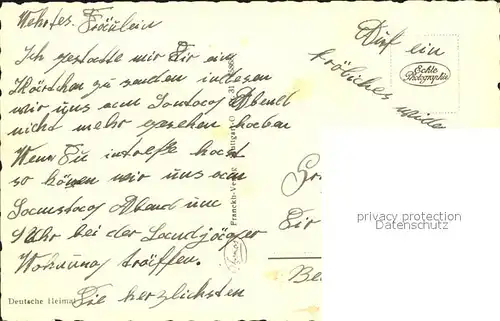 Wehrtes Fräulein
Ich gestatte mir Dir ein
Kärtchen zu senden indesen
wir uns am Sontag Abend
nicht mehr gesehen haben
Wenn Du intreße hast
so könen wir uns am
Samstag Abend um
9 Uhr bei der Landjäger
Wohnung träffen.
Die herzlichsten
Auf ein
fröhliches wide
Echte
Photographie
Franckh-Verlag Stuttgart-O
Deutsche Heimat
Dir
Be
privacy protection
Datenschutz